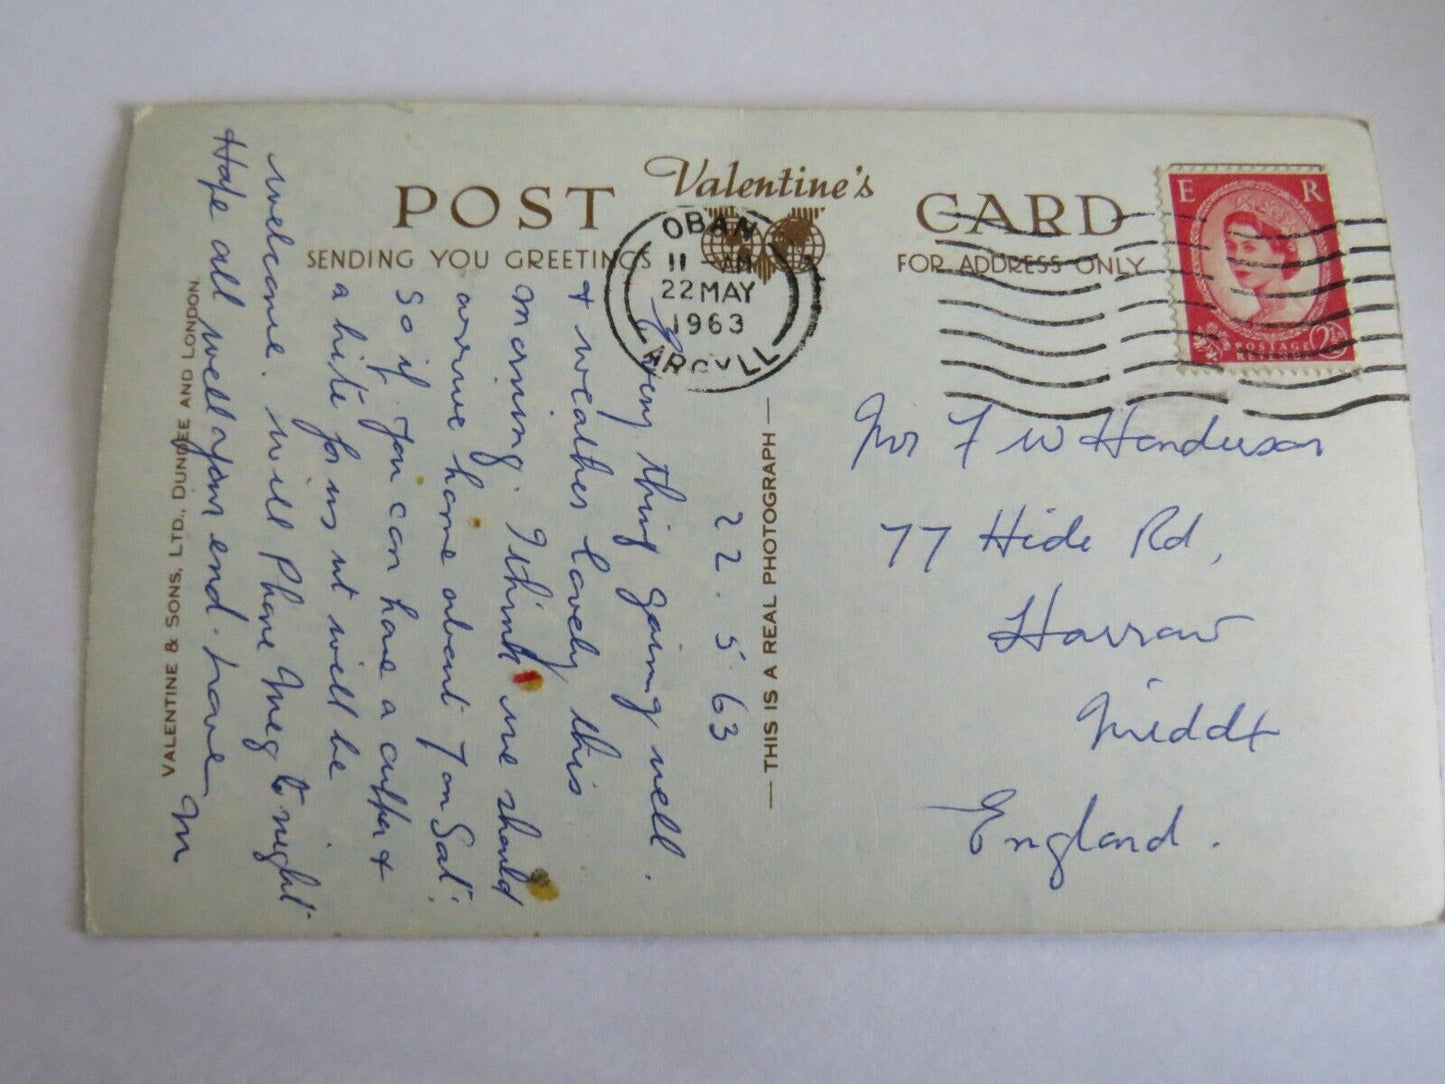 Valentine's
POST CARD
SENDING YOU GREETINGS
FOR ADDRESS ONLY
OBAN
11 AM
22 MAY
1963
ARGYLL
E R
POSTAGE
REVENUE
2½
22.5.63
Every thing going well.
+ weather lovely this
morning. I think we should
arrive home about 7 on Sat.
So if you can have a cuppa +
a bite for us it will be
welcome. will Phone Meg to night
Hope all well your end. Love
M
VALENTINE & SONS, LTD., DUNDEE AND LONDON.
— THIS IS A REAL PHOTOGRAPH —
Mr F W Henderson
77 Hide Rd,
Harrow
Middx
England.